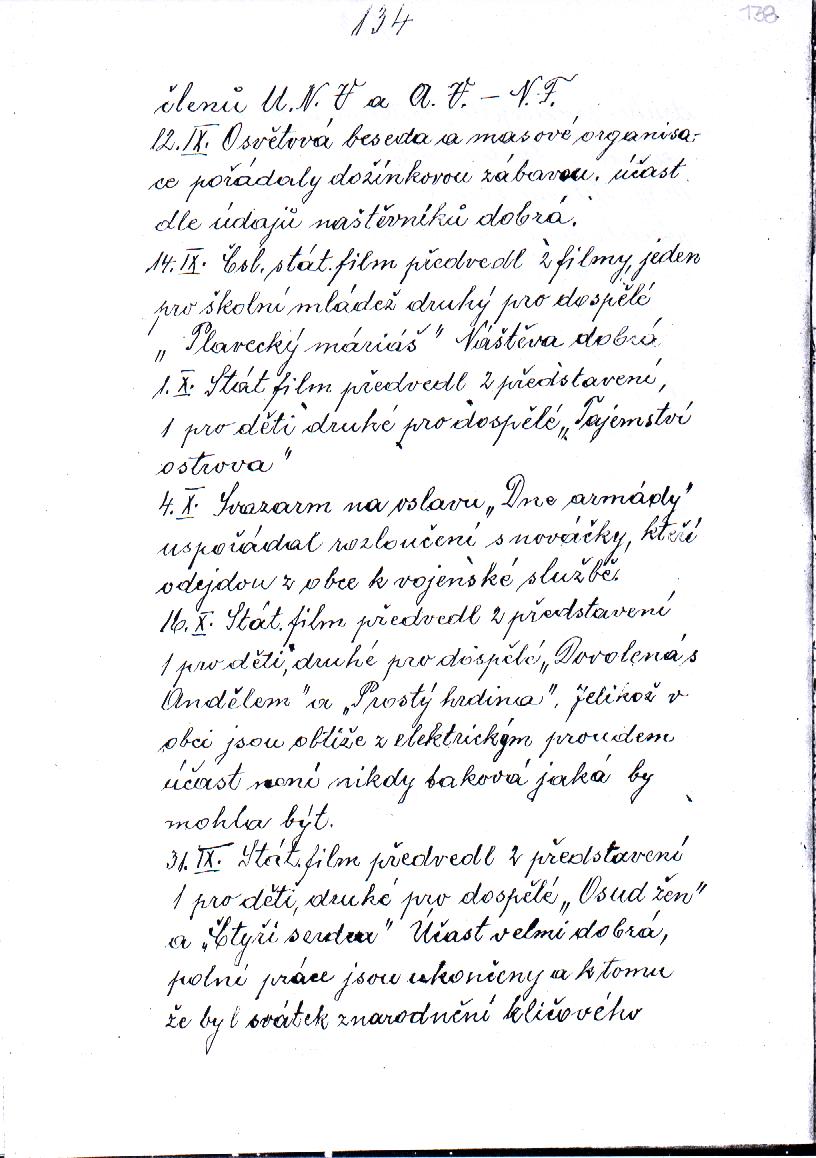 134
138
členů U.N.V a A.V. – N.F.
12.IX. Osvětová beseda a masové organisa-
ce pořádaly dožínkovou zábavou. účast
dle údajů naštěvníků dobrá.
14.IX. Čsl. stát. film předvedl 2 filmy, jeden
pro školní mládež druhý pro dospělé
„Plavecký máriáš" Náštěva dobrá
1.X. Stát film předvedl 2 představení,
1 pro děti druhé pro dospělé „Tajemství
ostrova"
4.X. Svazarm na oslavu „Dne armády"
uspořádal rozloučení s nováčky, kteří
odejdou z obce k vojenské službě.
16.X. Stát. film předvedl 2 představení
1 pro děti, druhé pro dospělé „Dovolená s
Andělem" a „Prostý hrdina". Jelikož v
obci jsou obtíže z elektrickým proudem
účast není nikdy taková jaká by
mohla být.
31.IX. Stát. film předvedl 2 představení
1 pro děti, druhé pro dospělé „Osud žen"
a „Čtyři serdca" Účast velmi dobrá,
polní práce jsou ukončeny a k tomu
že byl svátek znarodnění klíčového